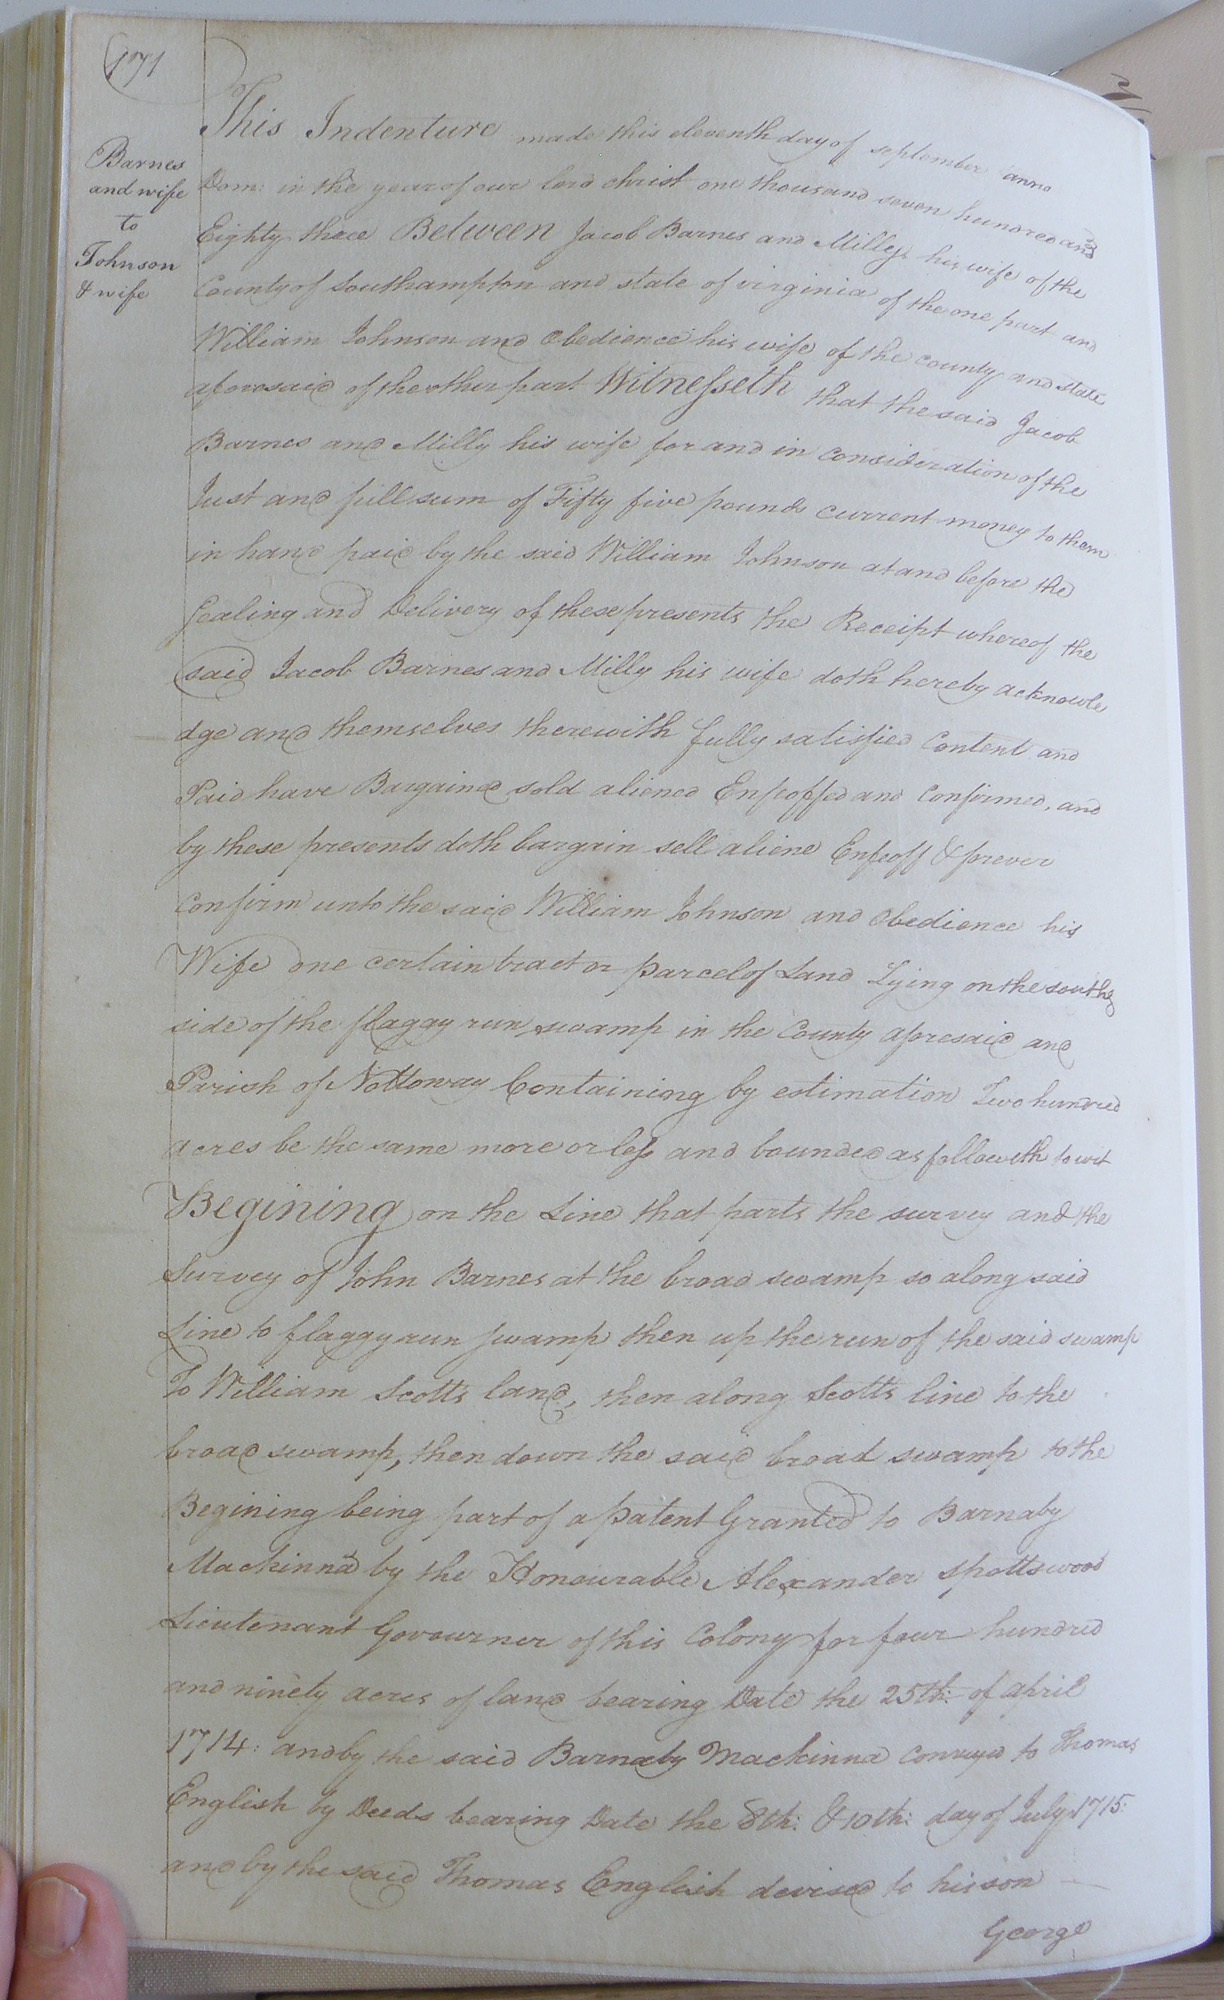 171
Barnes
and wife
to
Johnson
& wife
This Indenture made this eleventh day of september anno
Dom: in the year of our lord christ one thousand seven hundred and
Eighty three Between Jacob Barnes and Milly his wife of the
County of Southampton and state of virginia of the one part and
William Johnson and Obedience his wife of the county and state
aforesaid of the other part Witnesseth that the said Jacob
Barnes and Milly his wife for and in consideration of the
Just and full sum of Fifty five pounds current money to them
in hand paid by the said William Johnson at and before the
Sealing and Delivery of these presents the Receipt whereof the
said Jacob Barnes and Milly his wife doth hereby acknowle
dge and themselves therewith fully satisfied Content and
Paid have Bargained sold aliened Enfeoffed and Confirmed, and
by these presents doth bargain sell aliene Enfeoff & forever
Confirm unto the said William Johnson and Obedience his
Wife one certain tract or parcel of Land Lying on the south
side of the flaggy run swamp in the County aforesaid and
Parish of Nottoway Containing by estimation Two hundred
acres be the same more or less and bounded as followeth to wit
Begining on the Line that parts the survey and the
Survey of John Barnes at the broad swamp so along said
Line to flaggy run swamp then up the run of the said swamp
To William Scotts land, then along Scotts line to the
broad swamp, then down the said broad swamp to the
Begining being part of a patent Granted to Barnaby
Mackinna by the Honourable Alexander Spottswood
Lieutenant Govourner of this Colony for four hundred
and ninety acres of land bearing Date the 25th: of april
1714: and by the said Barnaby Mackinna conveyd to Thomas
English by Deeds bearing Date the 8th: & 10th: day of July 1715:
and by the said Thomas English devised to his son
George